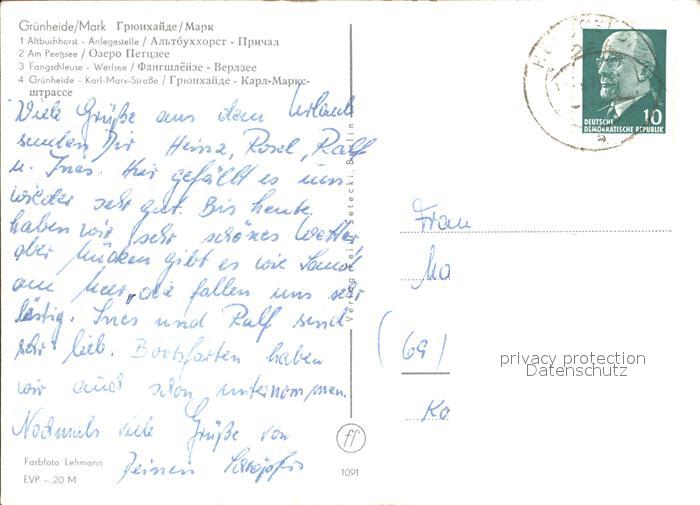 Grünheide/Mark Грюнхайде/Марк
1 Altbuchhorst - Anlegestelle / Альтбуххорст - Причал
2 Am Peetzsee / Озеро Петцзее
3 Fangschleuse - Werlsee / Фангшлёйзе - Верлзее
4 Grünheide - Karl-Marx-Straße / Грюнхайде - Карл-Маркс-
штрассе
Viele Grüße aus dem Urlaub
senden Dir Heinz, Rosel, Ralf
u. Ines. Hier gefällt es uns
wieder sehr gut. Bis heute
haben wir sehr schönes Wetter,
aber Mücken gibt es wie Sand
am Meer, die fallen uns sehr
lästig. Ines und Ralf sind
sehr lieb. Bootsfarten haben
wir auch schon unternommen.
Nochmals viele Grüße von
Deinen
Farbfoto Lehmann
EVP -.20 M
1091
ff
DEUTSCHE
DEMOKRATISCHE REPUBLIK
10
Frau
Ma
(69)
Ko
privacy protection
Datenschutz